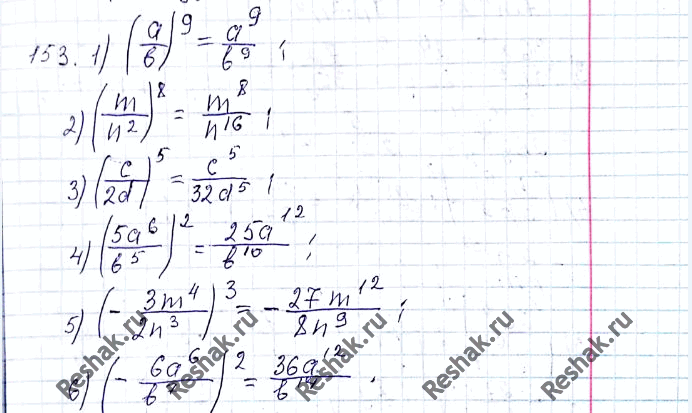 153. 1) (a/b)^9 = a^9/b^9 ;
2) (m/n^2)^8 = m^8/n^16 ;
3) (c/2d)^5 = c^5/32d^5 ;
4) (5a^6/b^5)^2 = 25a^12/b^10 ;
5) (- 3m^4/2n^3)^3 = - 27m^12/8n^9 ;
6) (- 6a^6/b)^2 = 36a^12/b .
Reshak.ru Reshak.ru Reshak.ru Reshak.ru Reshak.ru